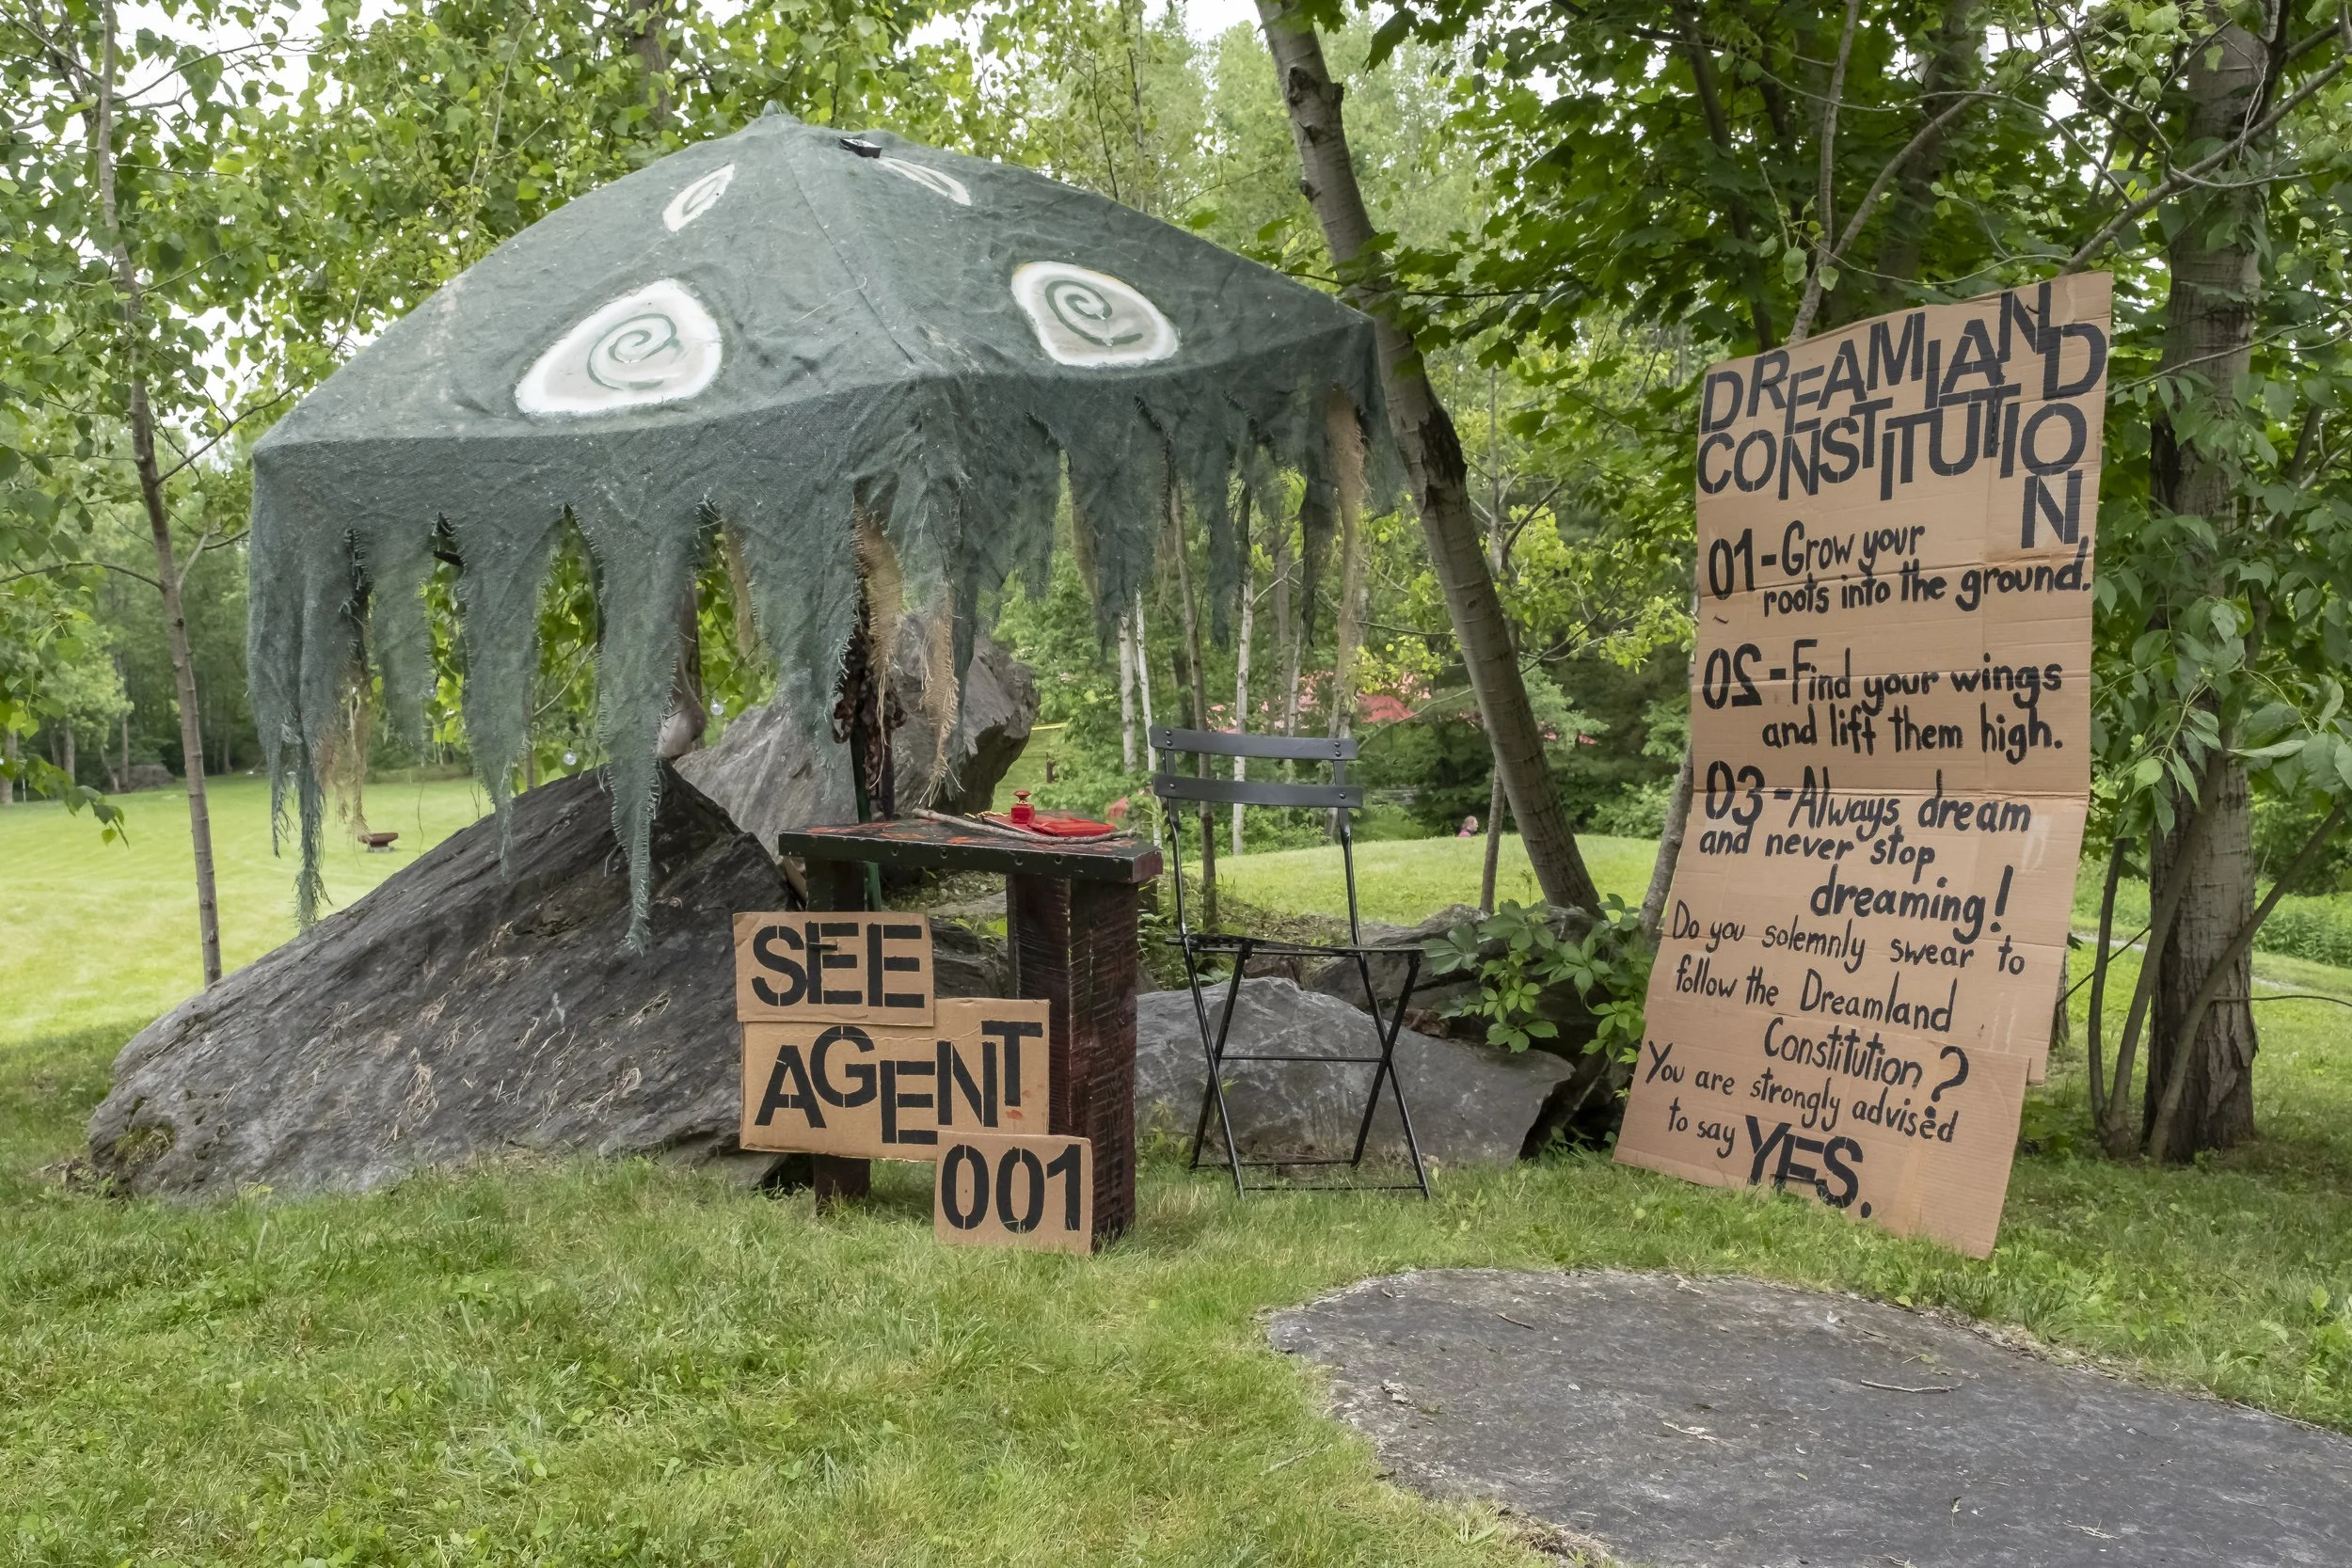 SEE
AGENT
001
DREAMLAND
CONSTITUTION
01-Grow your
roots into the ground.
02-Find your wings
and lift them high.
03-Always dream
and never stop
dreaming!
Do you solemnly swear to
follow the Dreamland
Constitution?
You are strongly advised
to say YES.